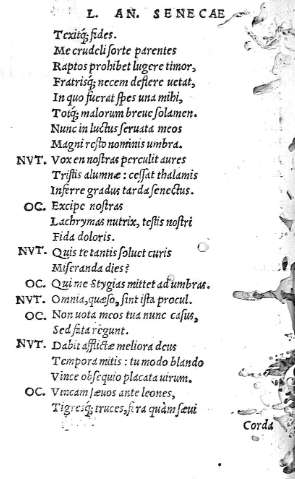 L. AN. SENECAE
Texitq; fides.
Me crudeli sorte parentes
Raptos prohibet lugere timor,
Fratrisq; necem deflere uetat,
In quo fuerat spes una mihi,
Totq; malorum breue solamen.
Nunc in luctus seruata meos
Magni resto nominis umbra.
NVT. Vox en nostras perculit aures
Tristis alumnæ: cessat thalamis
Inferre gradus tarda senectus.
OC. Excipe nostras
Lachrymas nutrix, testis nostri
Fida doloris.
NVT. Quis te tantis soluet curis
Miseranda dies?
OC. Qui me Stygias mittet ad umbras.
NVT. Omnia, quæso, sint ista procul.
OC. Non uota meos tua nunc casus,
Sed fata regunt.
NVT. Dabit afflictæ meliora deus
Tempora mitis: tu modo blando
Vince obsequio placata uirum.
OC. Vincam sæuos ante leones,
Tigresq; truces, fera quàm sæui
Corda